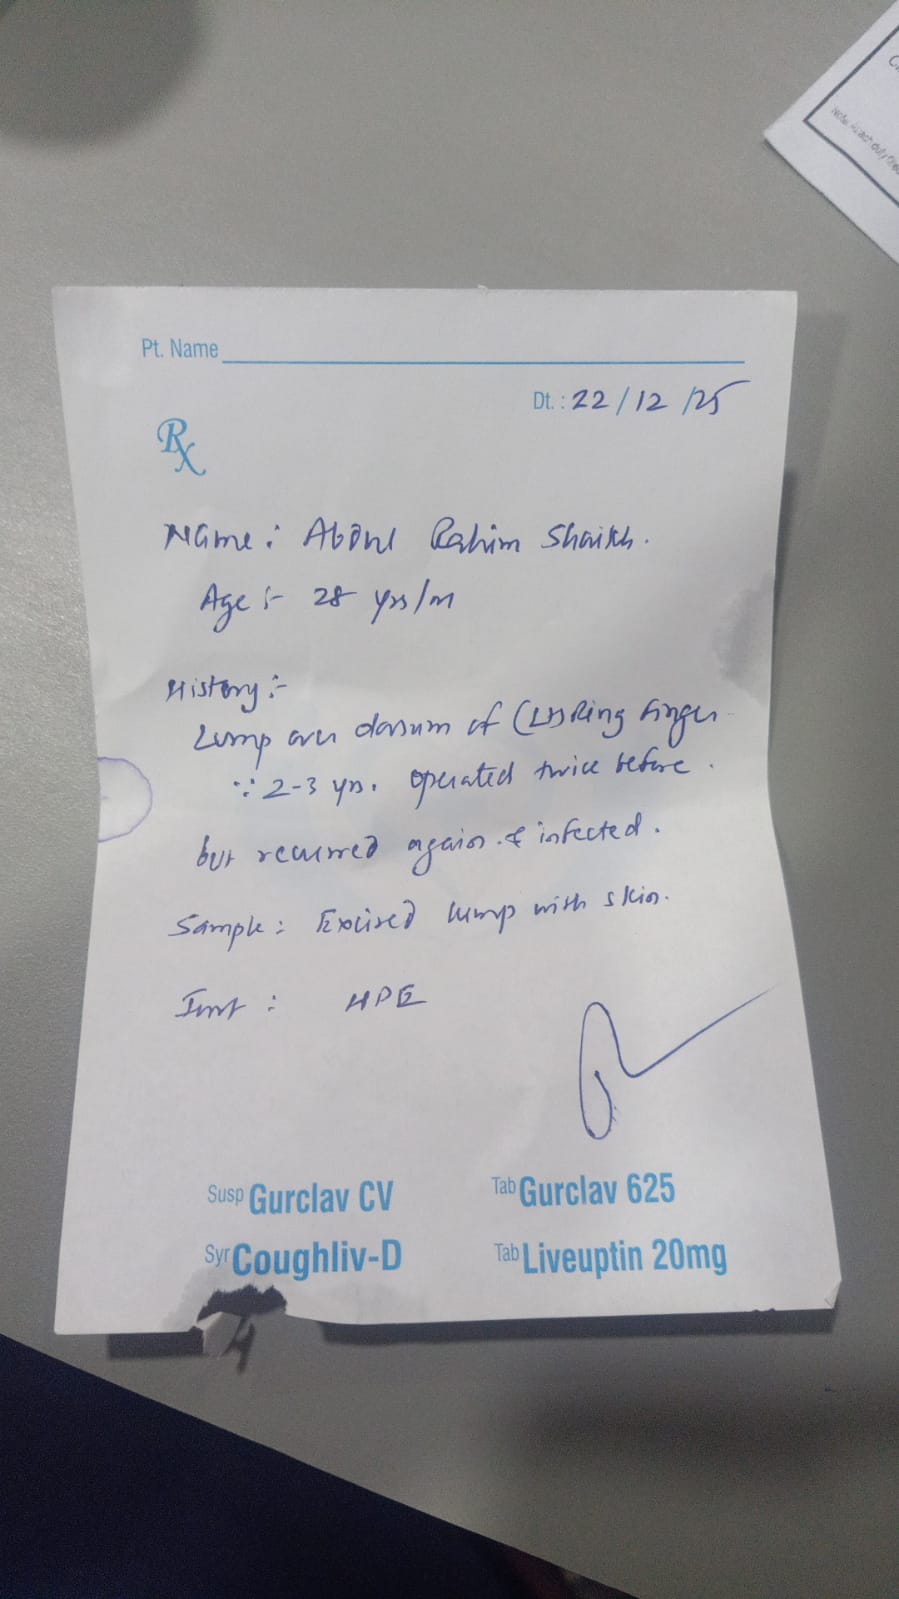 Pt. Name
Dt.: 22/12/25
Rx
Name: Abdul Rahim Shaikh.
Age :- 28 yrs/m
History :-
Lump over dorsum of (Lt) Ring finger
∵ 2-3 yrs. operated twice before.
but recurred again & infected.
Sample: Excised lump with skin.
: HPE
Susp Gurclav CV Tab Gurclav 625
Syr Coughliv-D Tab Liveuptin 20mg